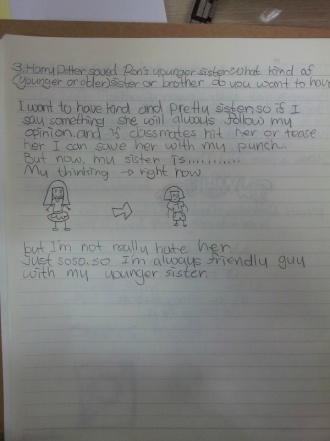 3. Harry Potter saved Ron's younger sister. What kind of
(younger or older) sister or brother do you want to have
I want to have kind and pretty sister, so if I
say something she will always follow my
opinion. and if classmates hit her or tease
her I can save her with my punch.
But now, my sister is...........
My thinking → right now
but I'm not really hate her
Just soso. so I'm always friendly guy
with my younger sister.